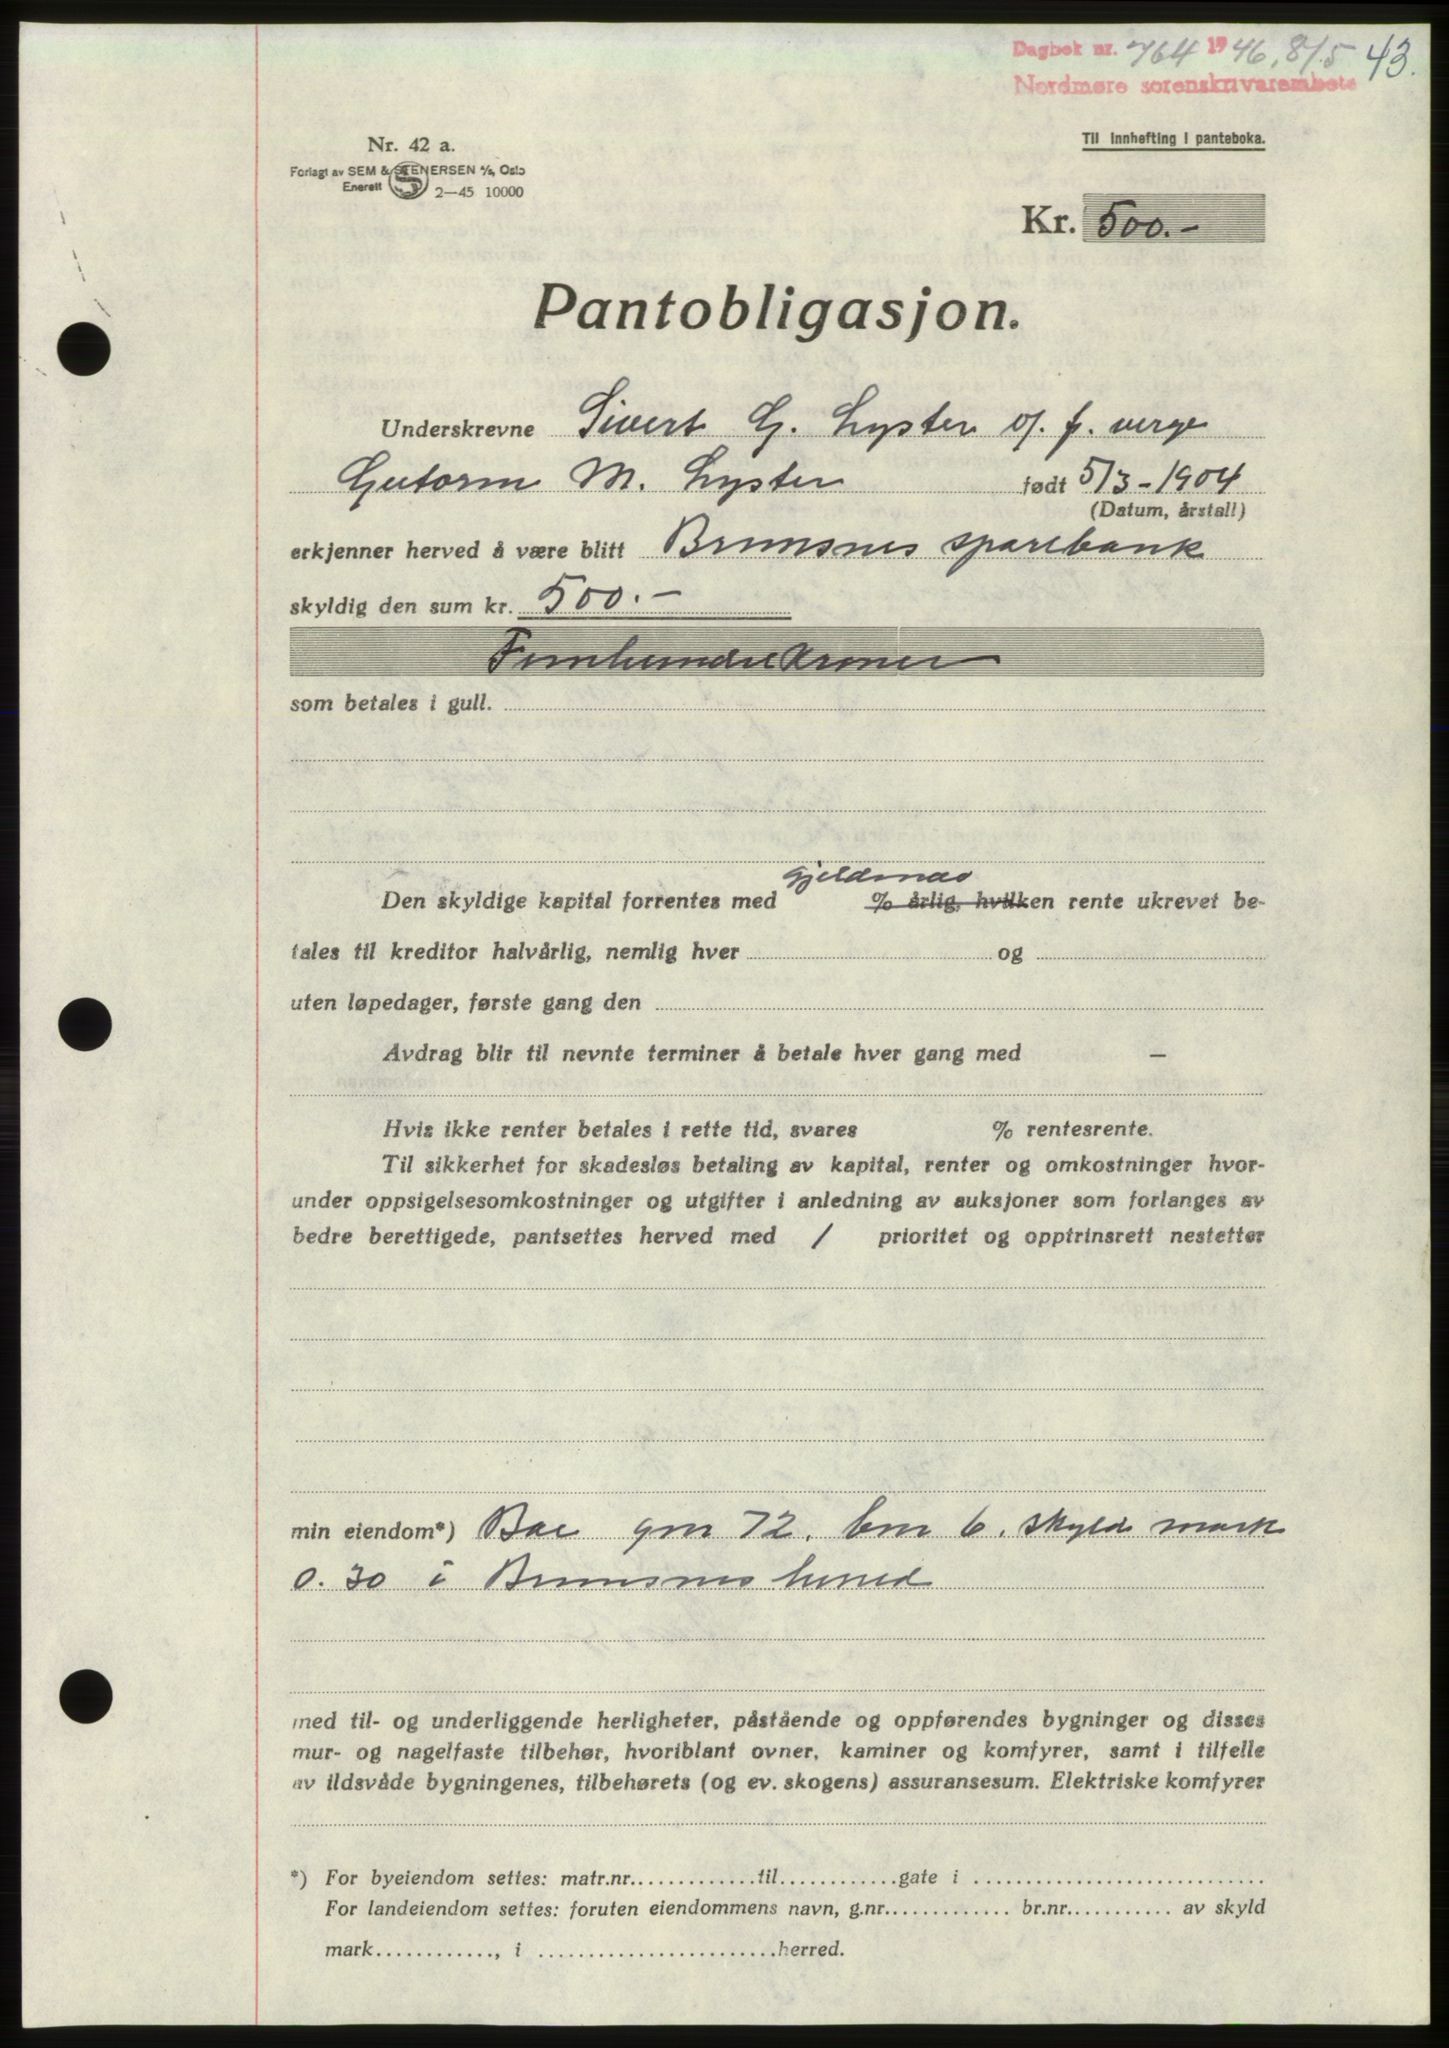 Dagbok nr. 764 1946, 8/5 43.
Nordmøre sorenskrivarembete
Nr. 42 a.
Til innhefting i panteboka.
Forlagt av SEM & STENERSEN A/S, Oslo
Enerett 2—45 10000
Kr. 500.-
Pantobligasjon.
Underskrevne Sivert G. Lyster v/ f. verge
Gutorm M. Lyster født 5/3-1904
(Datum, årstall)
erkjenner herved å være blitt Bremsnes sparebank
skyldig den sum kr. 500.-
Femhundre kroner
som betales i gull.
gjeldende
Den skyldige kapital forrentes med % årlig, hvilken rente ukrevet be-
tales til kreditor halvårlig, nemlig hver og
uten løpedager, første gang den
Avdrag blir til nevnte terminer å betale hver gang med —
Hvis ikke renter betales i rette tid, svares % rentesrente.
Til sikkerhet for skadesløs betaling av kapital, renter og omkostninger hvor-
under oppsigelsesomkostninger og utgifter i anledning av auksjoner som forlanges av
bedre berettigede, pantsettes herved med 1 prioritet og opptrinsrett nestetter
min eiendom*) Bae gnr 72. bnr 6. skyld mark
0.30 i Bremsnes herred
med til- og underliggende herligheter, påstående og oppførendes bygninger og disses
mur- og nagelfaste tilbehør, hvoriblant ovner, kaminer og komfyrer, samt i tilfelle
av ildsvåde bygningenes, tilbehørets (og ev. skogens) assuransesum. Elektriske komfyrer
*) For byeiendom settes: matr.nr.............til............gate i .............................
For landeiendom settes: foruten eiendommens navn, g.nr............. br.nr........... av skyld
mark............, i ........................herred.